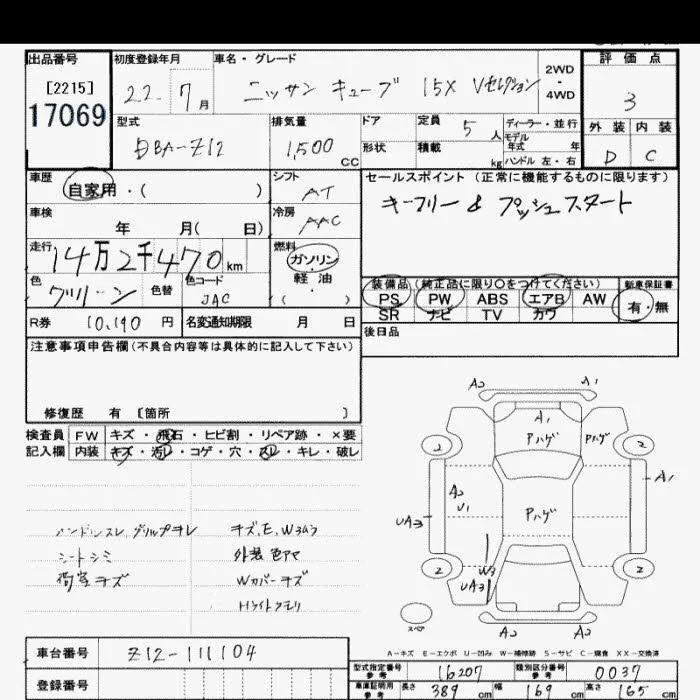 出品番号
[2215]
17069
初度登録年月
22 7 月
車名・グレード
ニッサン キューブ 15X Vセレクション
2WD
・
4WD
評価点
3
型式
DBA-Z12
排気量
1,500 cc
ドア
形状
定員 5 人
積載 kg
ディーラー・並行
モデル年式 年
ハンドル 左・右
外装 内装
D C
車歴
自家用・( )
シフト
AT
セールスポイント (正常に機能するものに限ります)
キーフリー & プッシュスタート
車検
年 月( 日)
冷房
AAC
走行
14万2千470 km
燃料
ガソリン
・
軽油
色
グリーン
色替
色コード
JAC
装備品(純正品に限り○をつけてください)
新車保証書
PS PW ABS エアB AW
SR ナビ TV カワ
有・無
R券 10,190 円
名変通知期限 月 日
後日品
注意事項申告欄(不具合内容等は具体的に記入して下さい)
修復歴 有 [箇所 ]
検査員
記入欄
FW キズ・飛石・ヒビ割・リペア跡・×要
内装 キズ・汚レ・コゲ・穴・スレ・キレ・破レ
ハンドルスレ、グリップキレ
シートシミ
荷室キズ
キズ、E、Wあり
外装 色アセ
Wカバーキズ
Hライトクモリ
A2 A1
A1
Pハゲ Pハゲ
2 2
A1
A2
U1
UA3
Pハゲ
W3
UA3
2 2
スペア
A2 A2
A-キズ E-エクボ U-凹み W-補修跡 S-サビ C-腐食 XX-交換済
車台番号 Z12-111104
登録番号
型式指定番号
参考
16207
類別区分番号
参考
0037
車庫証明用
参考
長さ 389 cm 幅 169 cm 高さ 165 cm